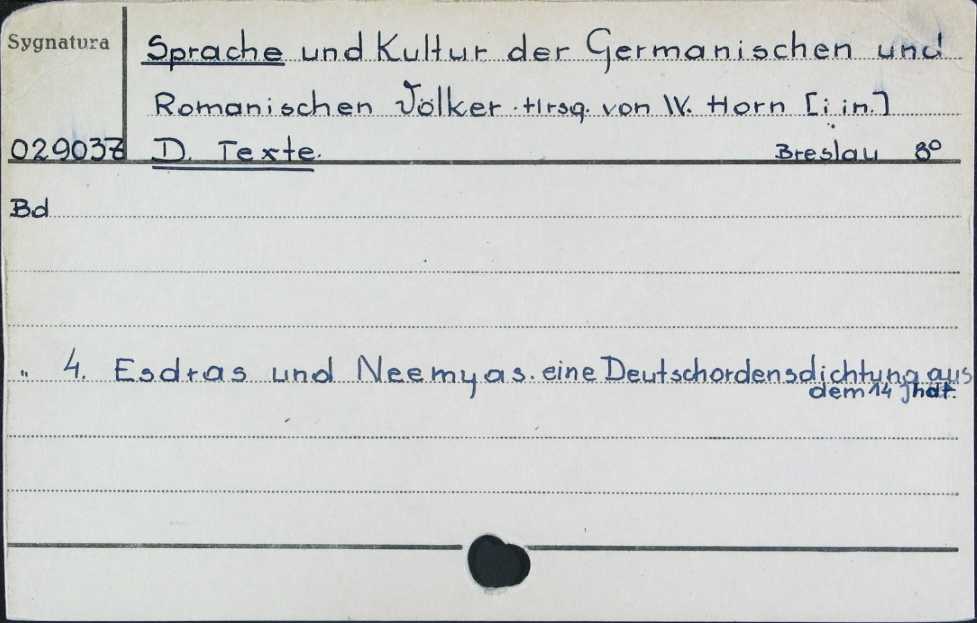 Sygnatura
Sprache und Kultur der Germanischen und
Romanischen Völker. Hrsg. von W. Horn [i in.]
029037 D. Texte. Breslau 8°
Bd
" 4. Esdras und Neemyas. eine Deutschordensdichtung aus
dem 14 Jhdt.